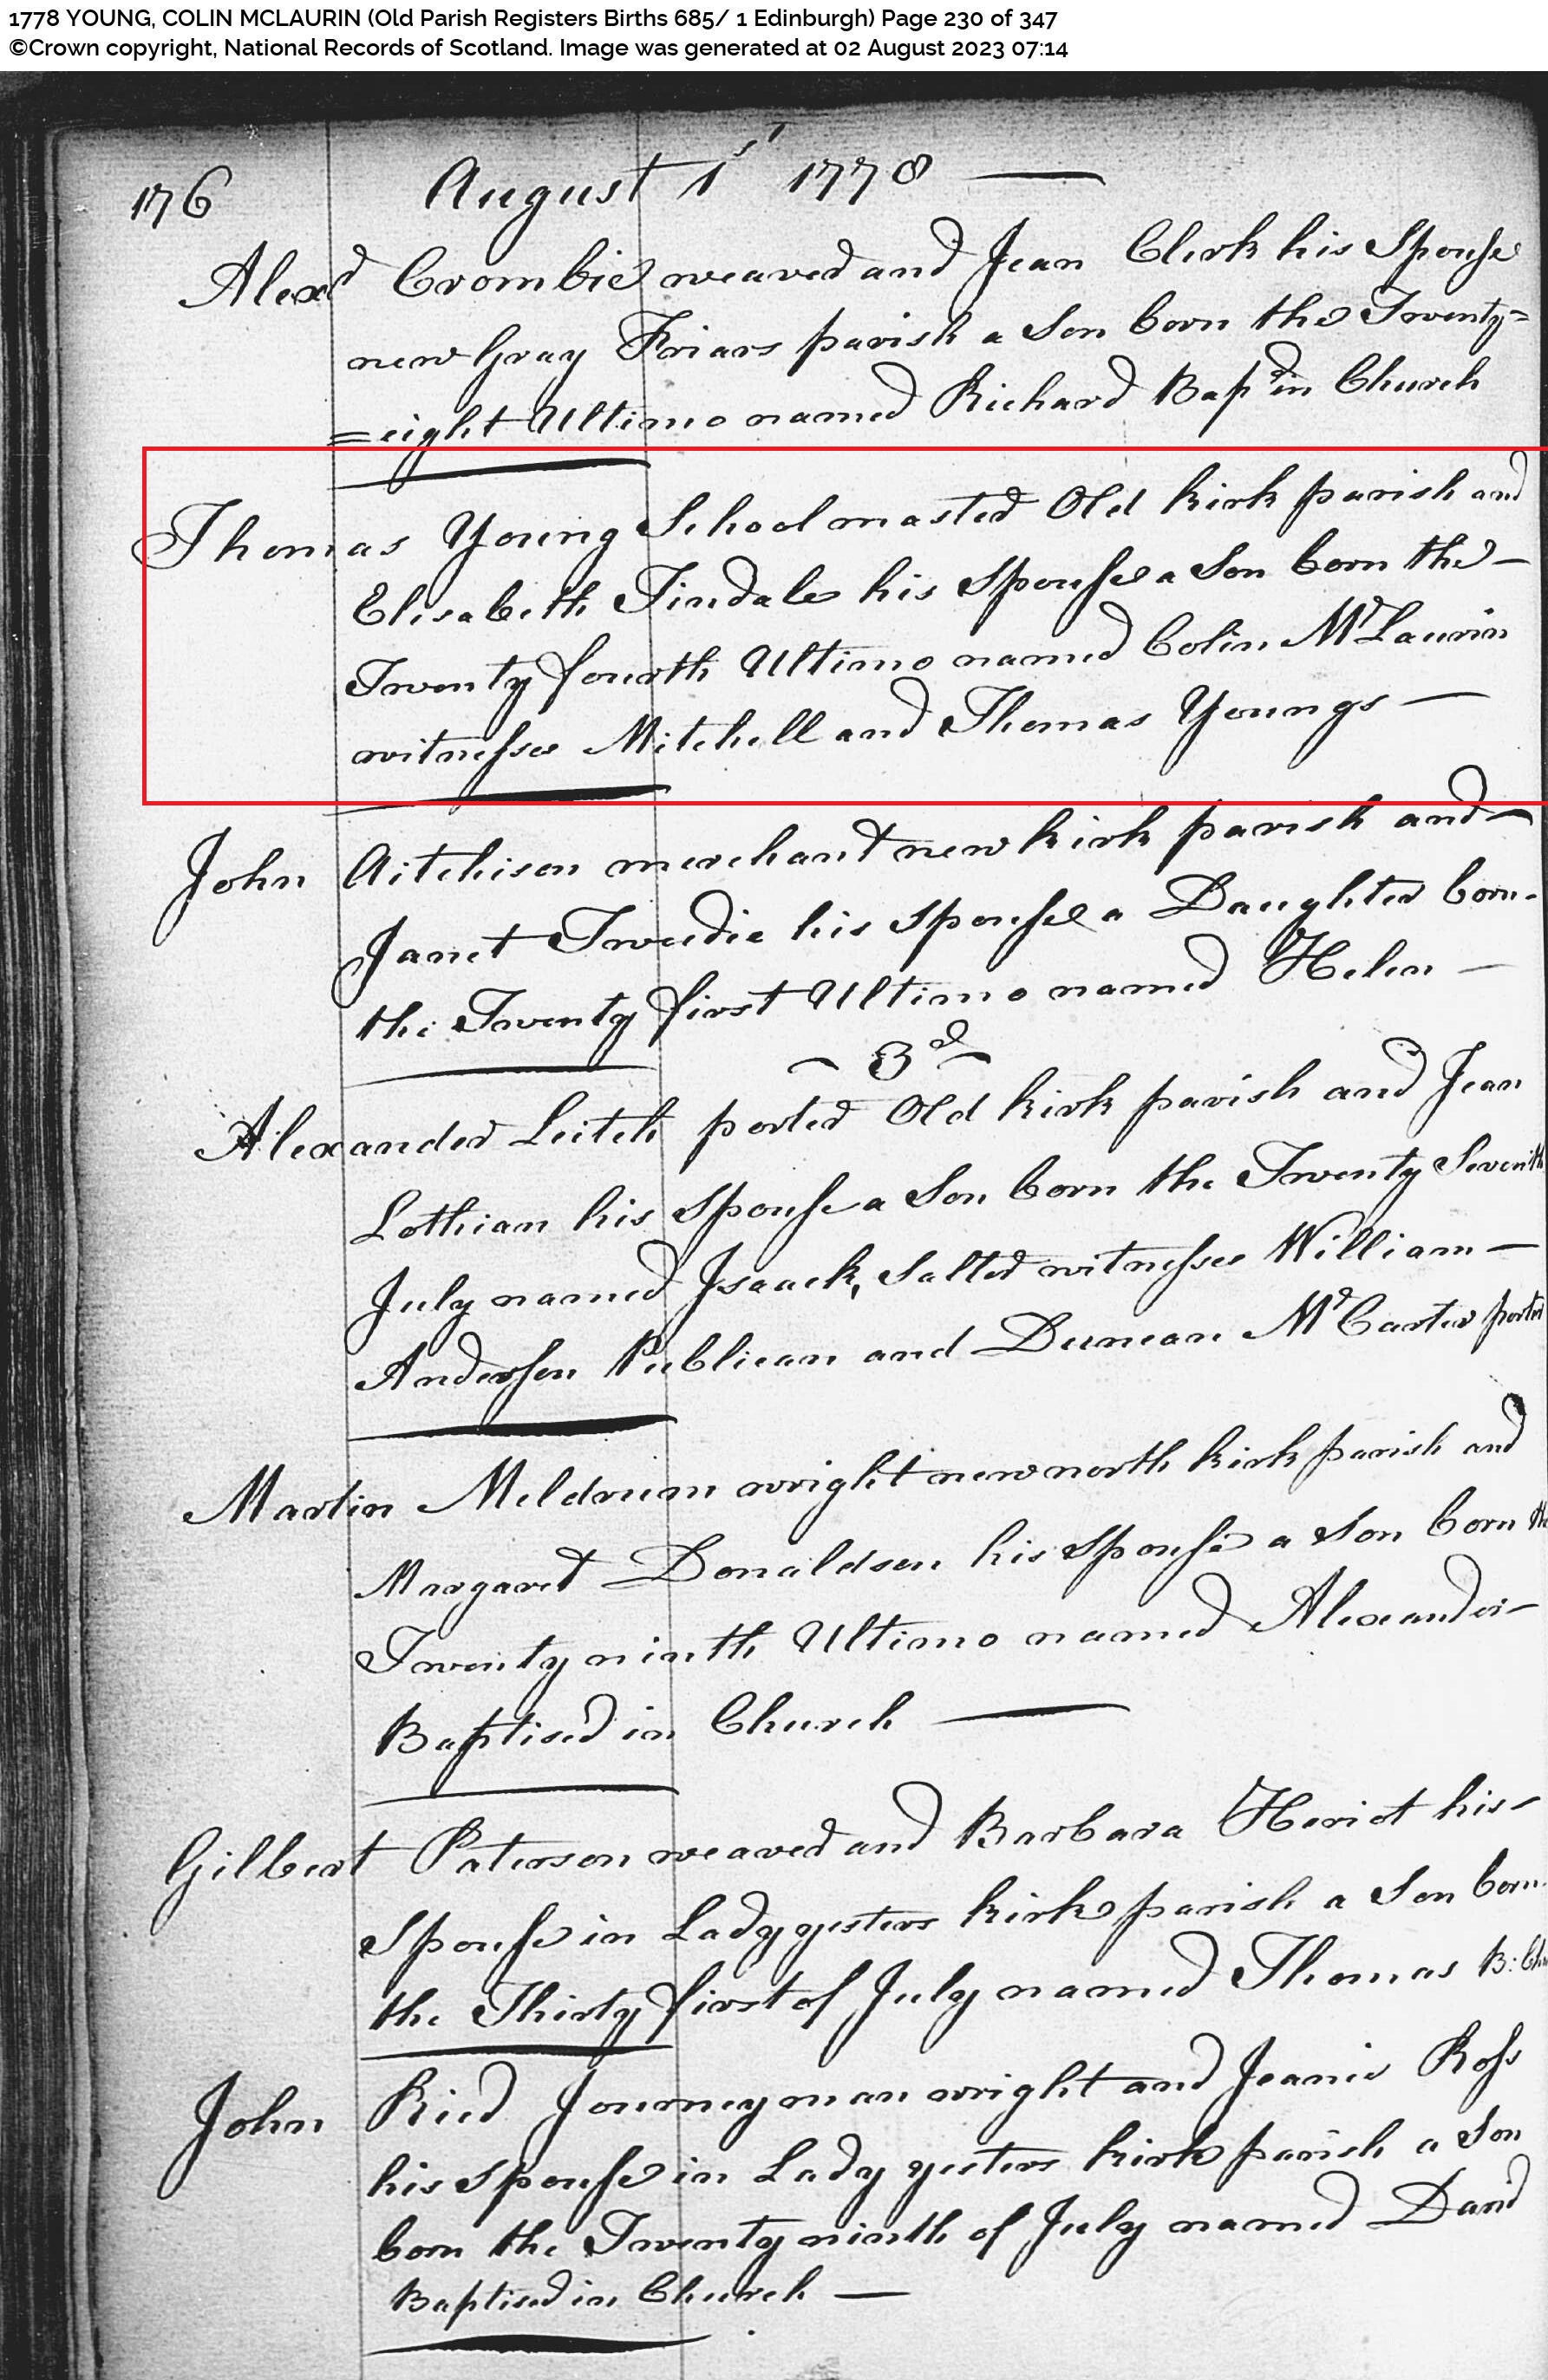 1778 YOUNG, COLIN MCLAURIN (Old Parish Registers Births 685/ 1 Edinburgh) Page 230 of 347
©Crown copyright, National Records of Scotland. Image was generated at 02 August 2023 07:14
176 August 1st 1778 —
Alexr Crombie weaver and Jean Clerk his Spouse
new Gray Friars parish a Son born the Twenty=
=eight Ultimo named Richard Bapd in Church
Thomas Young Schoolmaster Old kirk parish and
Elisabeth Tindale his Spouse a Son born the —
Twenty fourth Ultimo named Colin McLaurin
witnesses Mitchell and Thomas Youngs —
John Aitchison merchant new kirk parish and —
Janet Tweedie his Spouse a Daughter born
the Twenty first Ultimo named Helen —
~ 3d ~
Alexander Leitch porter Old kirk parish and Jean
Lothian his Spouse a Son born the Twenty Seventh
July named Isaack, Salter witnesses William —
Anderson Publican and Duncan McCarter porter
Martin Meldrum wright new north kirk parish and
Margaret Donaldson his Spouse a Son born the
Twenty ninth Ultimo named Alexander —
Baptised in Church —
Gilbert Paterson weaver and Barbara Heriot his —
Spouse in Lady yesters kirk parish a Son born
the Thirty first of July named Thomas B: Chu
John Ried Journeyman wright and Jeanie Ross
his Spouse in Lady yesters kirk parish a Son
born the Twenty ninth of July named David
Baptised in Church —